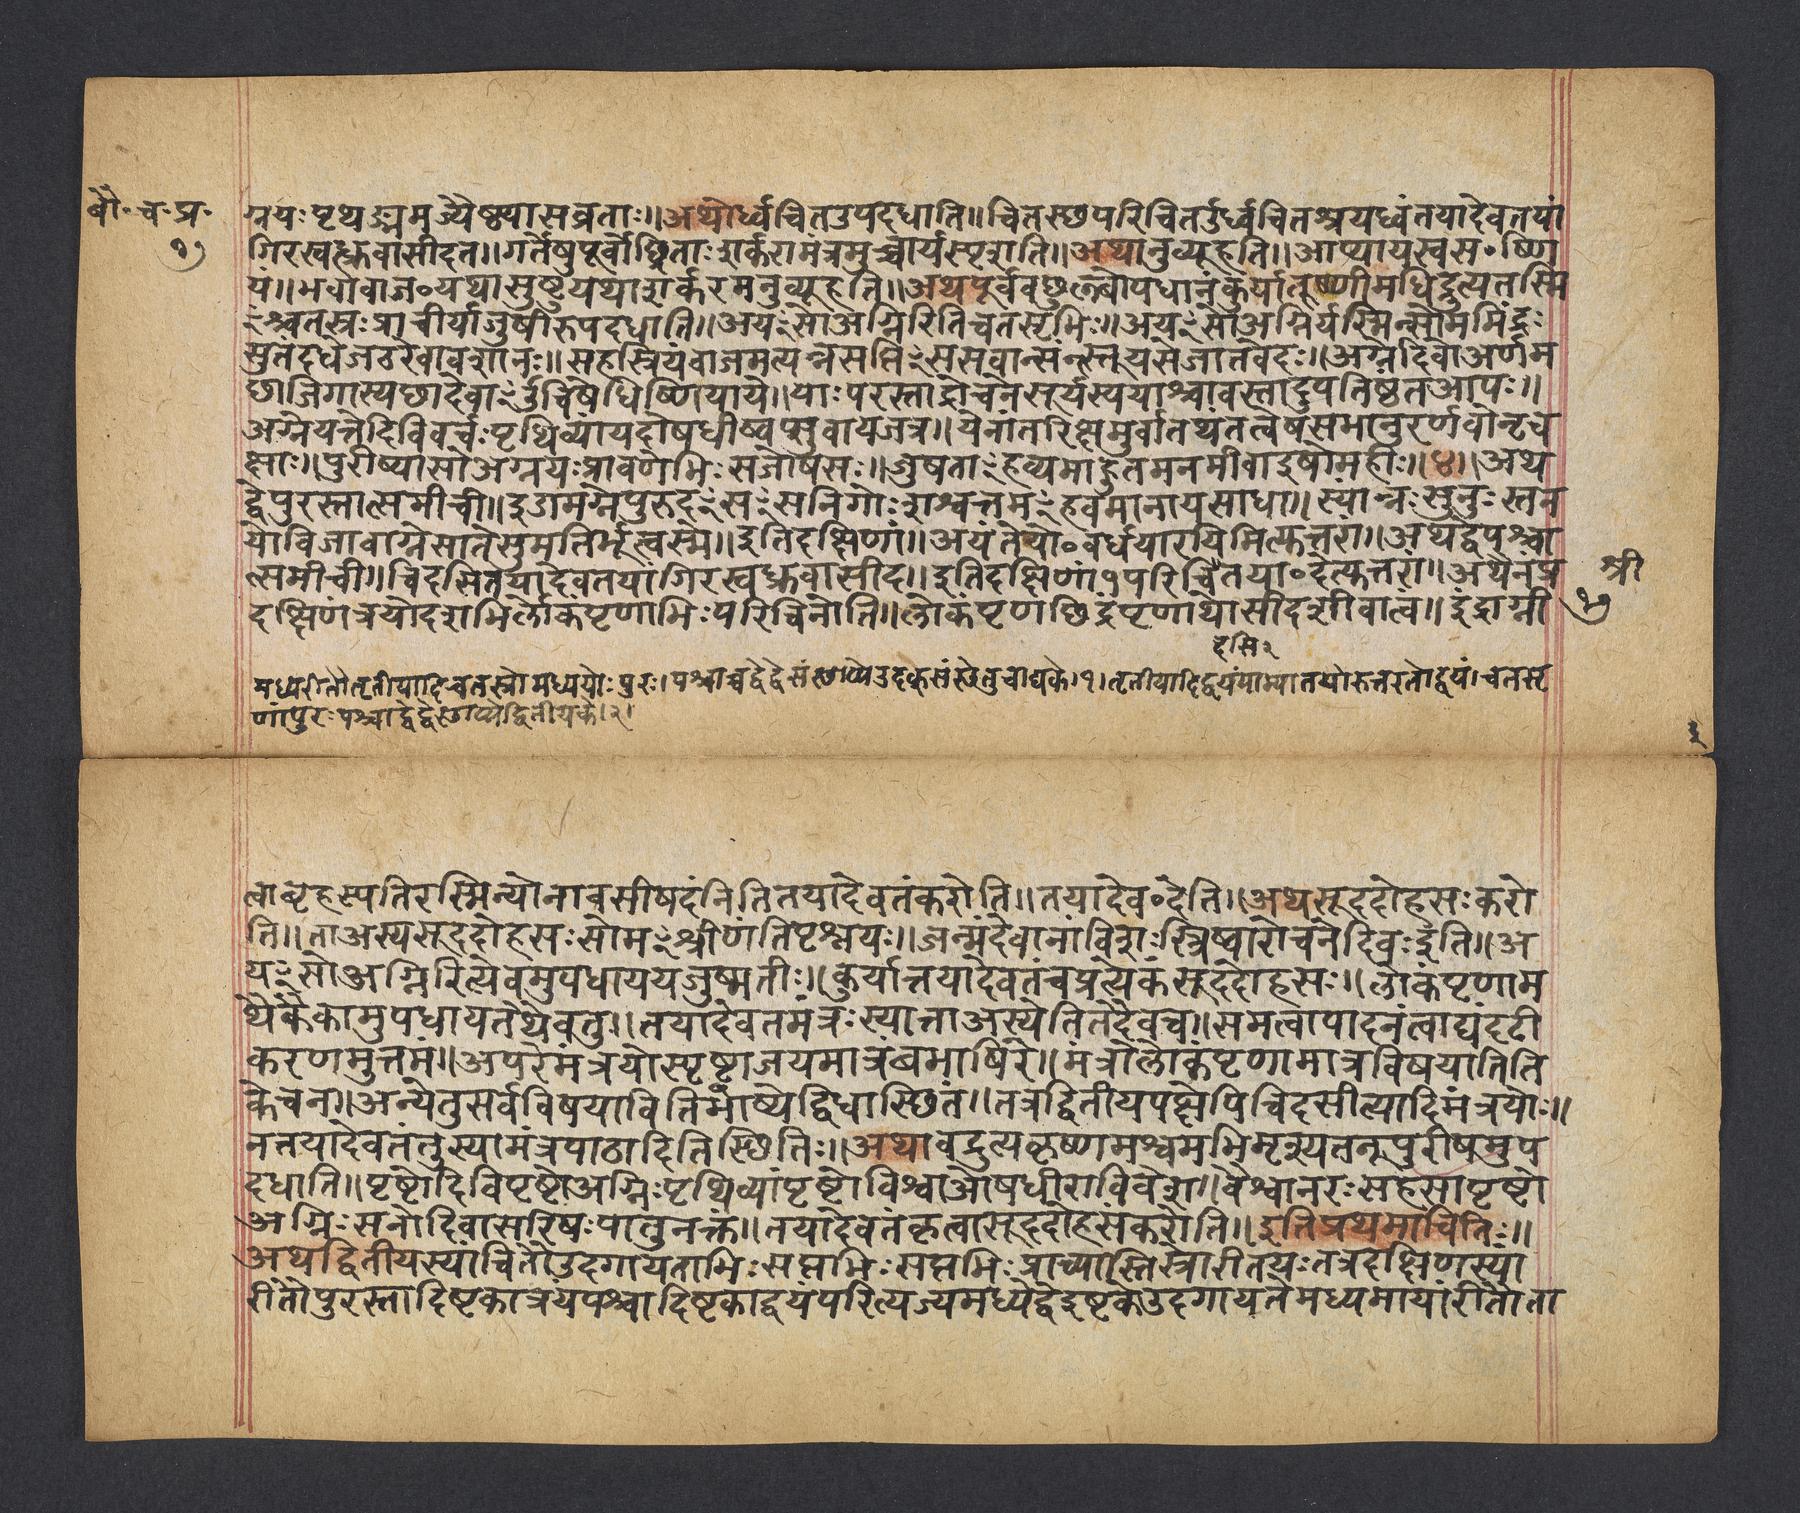 बौ॰ च॰ प्र॰
ग्नयःपृथङ्ममज्यैष्ठ्यायसव्रताः॥अथोर्ध्वचितउपदधाति॥चितस्छपरिचितर्उर्ध्वचितश्रयध्वंतयादेवतयां
१७
गिरस्वत्ध्रुवासीदत॥गर्तेषुपूर्वोछ्रिताःशर्करामंत्रमुच्चार्यस्पृशति॥अथानुव्यूहति॥आप्यायस्वस॰ष्णि
यं॥भवावाज॰यथासुष्टुयथाशर्करमनुव्यूहति॥अथपूर्ववछुल्बोपधानंकुर्यात्तूष्णीमधिद्रुत्यतस्मि
ꣳश्चतस्त्रःप्राचीर्याजुषीरुपदधाति॥अयꣳसोअग्निरितिचतसृभिः॥अयꣳसोअग्निर्यस्मिन्सोममिंद्रः
सुतंदधेजठरेवावशानः॥सहस्त्रियंवाजमत्यन्नसप्तिꣳससवान्सन्स्तूयसेजातवेदः॥अग्नेदिवोअर्णम
छाजिगास्यछादेवाꣳर्उचिषेधिष्णियाये॥याःपरस्ताद्रोचनेसूर्यस्ययाश्चावस्तादुपतिष्ठतआपः॥
अग्नेयत्तेदिविवर्चःपृथिव्यांयदोषधीष्वप्सुवायजत्र॥येनांतरिक्षमुर्वाततंथत्वेषसभानुरर्णवोनृच
क्षाः॥पुरीष्यासोअग्नयःप्रावणेभिःसजोषसः॥जुषंताꣳहव्यमाहुतमनमीवाइषोमहीः॥४॥अथ
द्वेपुरस्तात्समीची॥इडामग्नेपुरुदꣳसꣳसनिंगोःशश्वत्तमꣳहवमानायसाधा॥स्यान्नःसूनुःस्तन
योविजावाग्नेसातेसुमतिर्भूत्वस्मे॥इतिदक्षिणां॥अयंतेयो॰वर्धयारयिमित्युत्तरा॥अथद्वेपश्चा
त्समीची॥चिदसितयादेवतयांगिरस्वध्रुवासीद॥इतिदक्षिणां१परिचितया॰देत्युत्तरां॥अथैनंप्र
श्री
दक्षिणंत्रयोदशभिर्लोकंपृणाभिःपरिचिनोति॥लोकंपृणछिद्रंपृणाथोसीदशीवात्वं॥इंद्राग्नी
१७
हसि२
मध्यरीतौतृतीयादिचतस्त्रोमध्ययोःपुरः।पश्चाच्चद्वेद्वेसंस्थाप्येउदक्संस्थेतुचाद्यके।१।तृतीयादिद्वयंयाम्यातयोरुत्तरतोद्वयं।चतसृ
णांपुरःपश्चाद्द्वेद्वेस्थाप्येद्वितीयके।२।
त्वाबृहस्पतिरस्मिन्योनावसीषदंनितितयादेवतंकरोति॥तयादेव॰देति॥अथसूददोहसःकरो
ति॥ताअस्यसूददोहसःसोमꣳश्रीणंतिपृश्नयः॥जन्मंदेवानांविशःस्त्रिष्वारोचनेदिवःइति॥अ
यꣳसोअग्निरित्येवमुपधाययजुष्मतीः॥कुर्यात्तयादेवतंचप्रत्येकंसूददोहसः॥लोकंपृणाम
थैकैकामुपधायतथैवतु॥तयादेवतमंत्रःस्यात्ताअस्येतितदैवच॥समत्वापादनंत्वाद्यंदृढी
करणमुत्तमं॥अपरेमंत्रयोस्पृष्ट्वाजयमात्रंबभाषिरे॥मंत्रौलोकंपृणामात्रविषयातिति
केचन॥अन्येतुसर्वविषयावितिभाष्येद्विधास्छितं॥तत्रद्वितीयपक्षेपिचिदसीत्यादिमंत्रयोः॥
नतयादेवतंतुस्यामंत्रपाठादितिस्छितिः॥अथावद्रुत्यकृष्णमश्वमभिमृश्यतनूपुरीषमुप
दधाति॥पृष्टोदिविपृष्टोअग्निःपृथिव्यांपृष्टोविश्वाओषधीराविवेश॥वैश्वानरःसहसापृष्टो
अग्निःसनोदिवासरिषःपातुनक्तं॥तयादेवतंकृत्वासूददोहसंकरोति॥इतिप्रथमाचितिः॥
अथद्वितीयस्यांचितौउदगायताभिःसप्तभिःसप्तभिःप्राच्यास्तिस्त्रोरीतयःतत्रदक्षिणस्यां
रीतौपुरस्तादिष्टकात्रयंपश्चादिष्टकाद्वयंपरित्यज्यमध्येद्वेइष्टकेउदगायतेमध्यमायांरीतौता